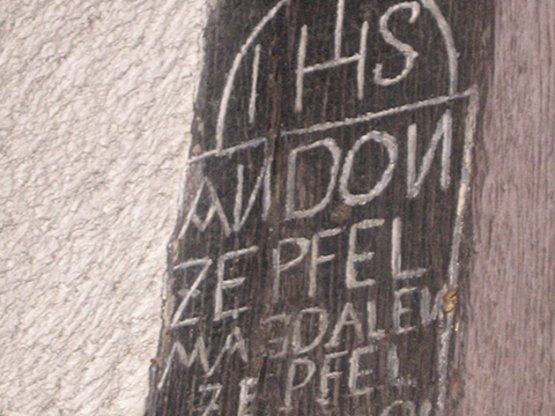 IHS
ANDON
ZEPFEL
MAGDALEN
ZEPFEL